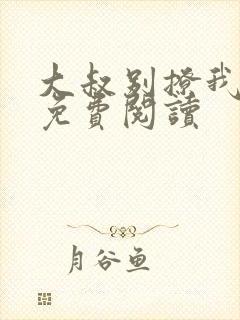 大叔别撩我
免費閱讀
月谷鱼